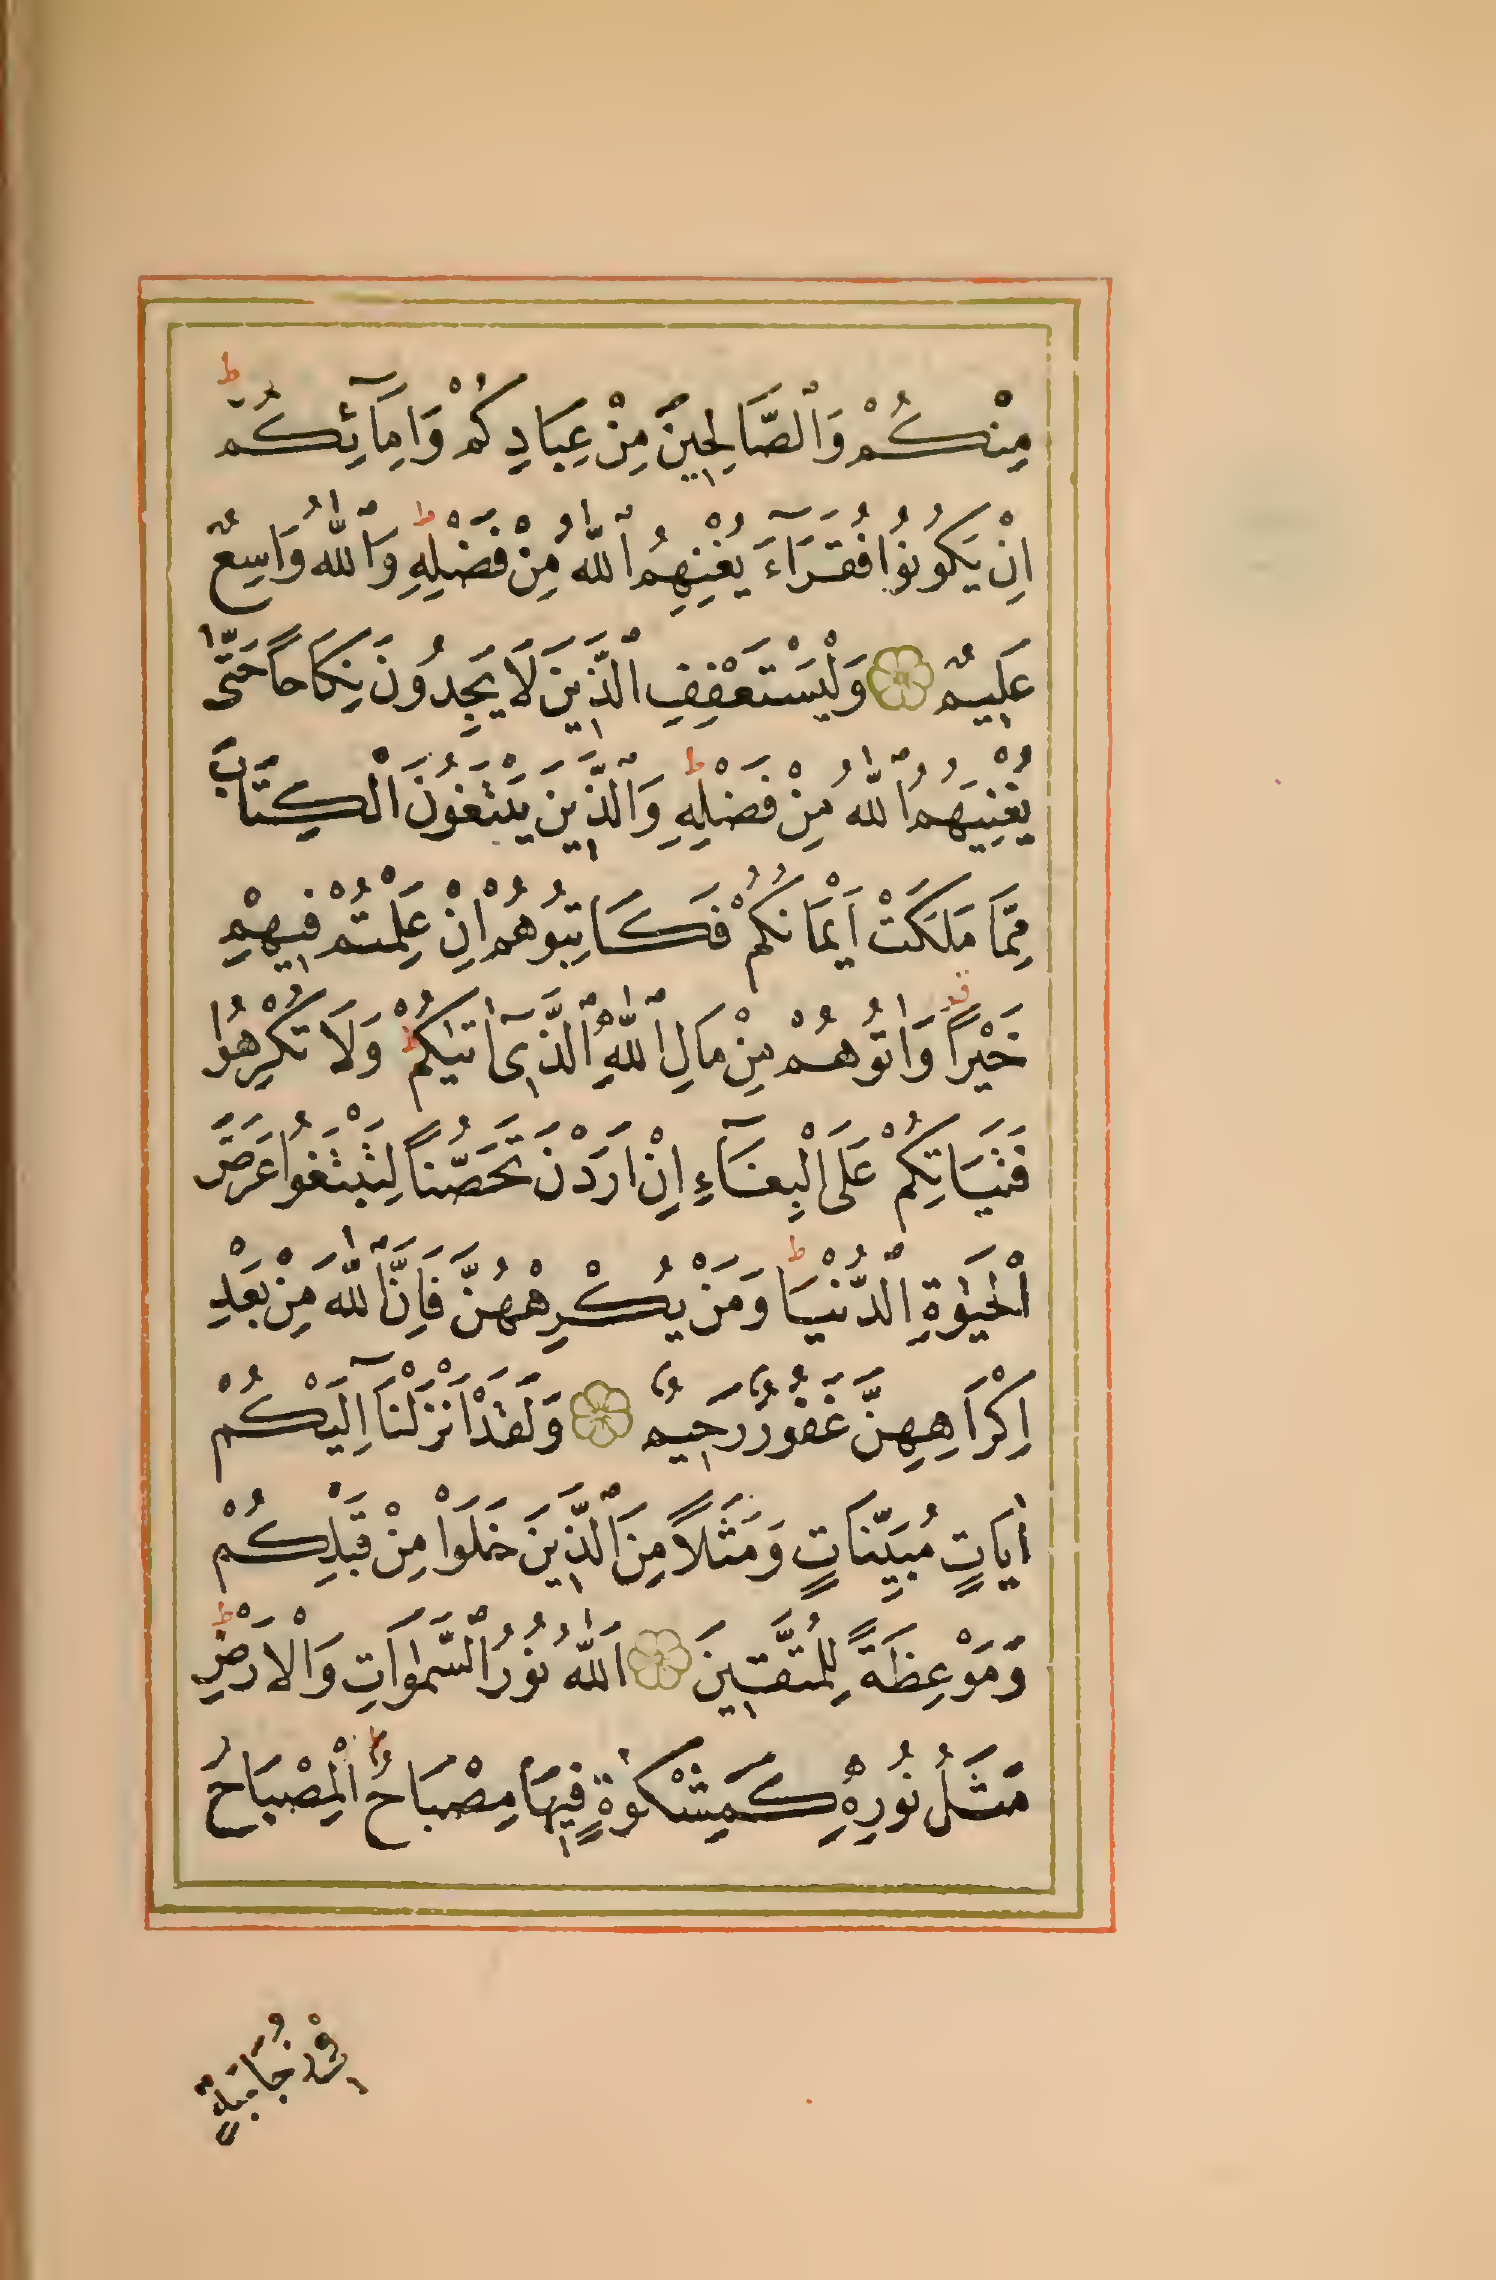 مِنْكُمْ وَٱلصَّالِحِينَ مِنْ عِبَادِكُمْ وَاِمَآئِكُمْ ط
اِنْ يَكُونُوا فُقَرَآءَ يُغْنِهِمُ ٱللّٰهُ مِنْ فَضْلِهِ ط وَٱللّٰهُ وَاسِعٌ
عَلِيمٌ وَلْيَسْتَعْفِفِ ٱلَّذِينَ لَا يَجِدُونَ نِكَاحاً حَتّٰى
يُغْنِيَهُمُ ٱللّٰهُ مِنْ فَضْلِهِ ط وَٱلَّذِينَ يَبْتَغُونَ الْكِتَابَ
مِمَّا مَلَكَتْ اَيْمَانُكُمْ فَكَاتِبُوهُمْ اِنْ عَلِمْتُمْ فِيهِمْ
خَيْراً ق وَاٰتُوهُمْ مِنْ مَالِ ٱللّٰهِ ٱلَّذِىٓ اٰتٰيكُمْ ط وَلَا تُكْرِهُوا
فَتَيَاتِكُمْ عَلَى الْبِغَآءِ اِنْ اَرَدْنَ تَحَصُّناً لِتَبْتَغُوا عَرَضَ
الْحَيٰوةِ ٱلدُّنْيَا ط وَمَنْ يُكْرِهْهُنَّ فَاِنَّ ٱللّٰهَ مِنْ بَعْدِ
اِكْرَاهِهِنَّ غَفُورٌ رَحِيمٌ وَلَقَدْ اَنْزَلْنَآ اِلَيْكُمْ
اٰيَاتٍ مُبَيِّنَاتٍ وَمَثَلاً مِنَ ٱلَّذِينَ خَلَوْا مِنْ قَبْلِكُمْ
وَمَوْعِظَةً لِلْمُتَّقِينَ اَللّٰهُ نُورُ ٱلسَّمٰوَاتِ وَالْاَرْضِ ط
مَثَلُ نُورِهِ كَمِشْكٰوةٍ فِيهَا مِصْبَاحٌ ط اَلْمِصْبَاحُ
فِى زُجَاجَةٍ